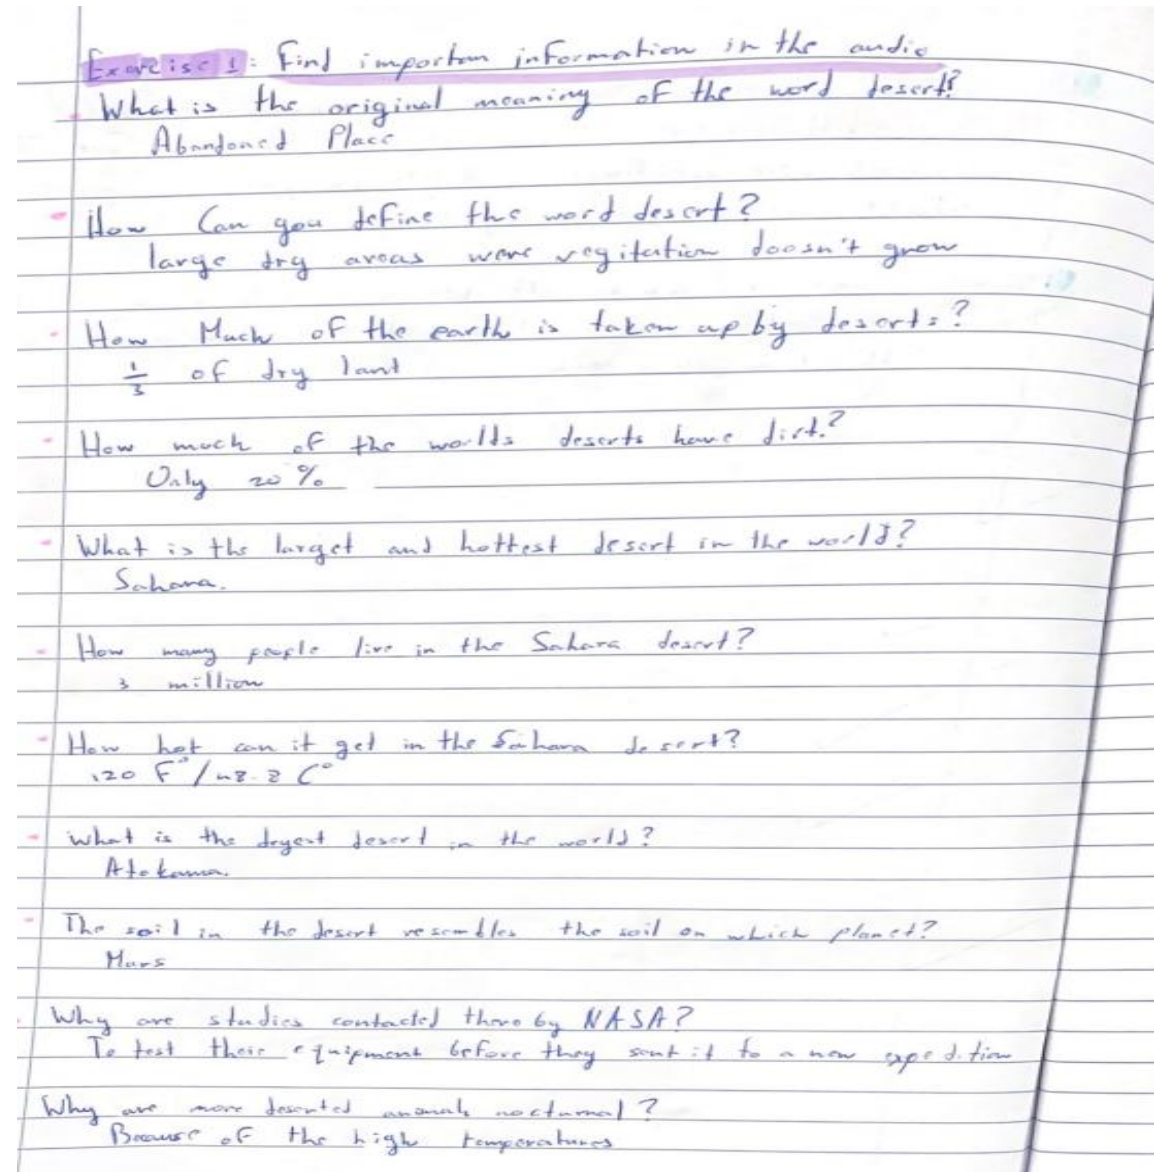 Exercise 1: Find importan information in the audio
What is the original meaning of the word desert?
Abandoned Place
- How Can you define the word desert?
large dry areas were vegitation doosn't grow
- How Much of the earth is taken up by deserts?
1/3 of dry lant
- How much of the worlds deserts have dirt?
Only 20 %
- What is the larget and hottest desert in the world?
Sahara.
- How many people live in the Sahara desert?
3 million
- How hot can it get in the Sahara desert?
120 F° / 48.8 C°
- What is the dryest desert in the world?
Atakama.
- The soil in the desert resembles the soil on which planet?
Mars
- Why are studies contacted there by NASA?
To test their equipment before they sent it to a new expedition
Why are more deserted animals nocturnal?
Because of the high temperatures